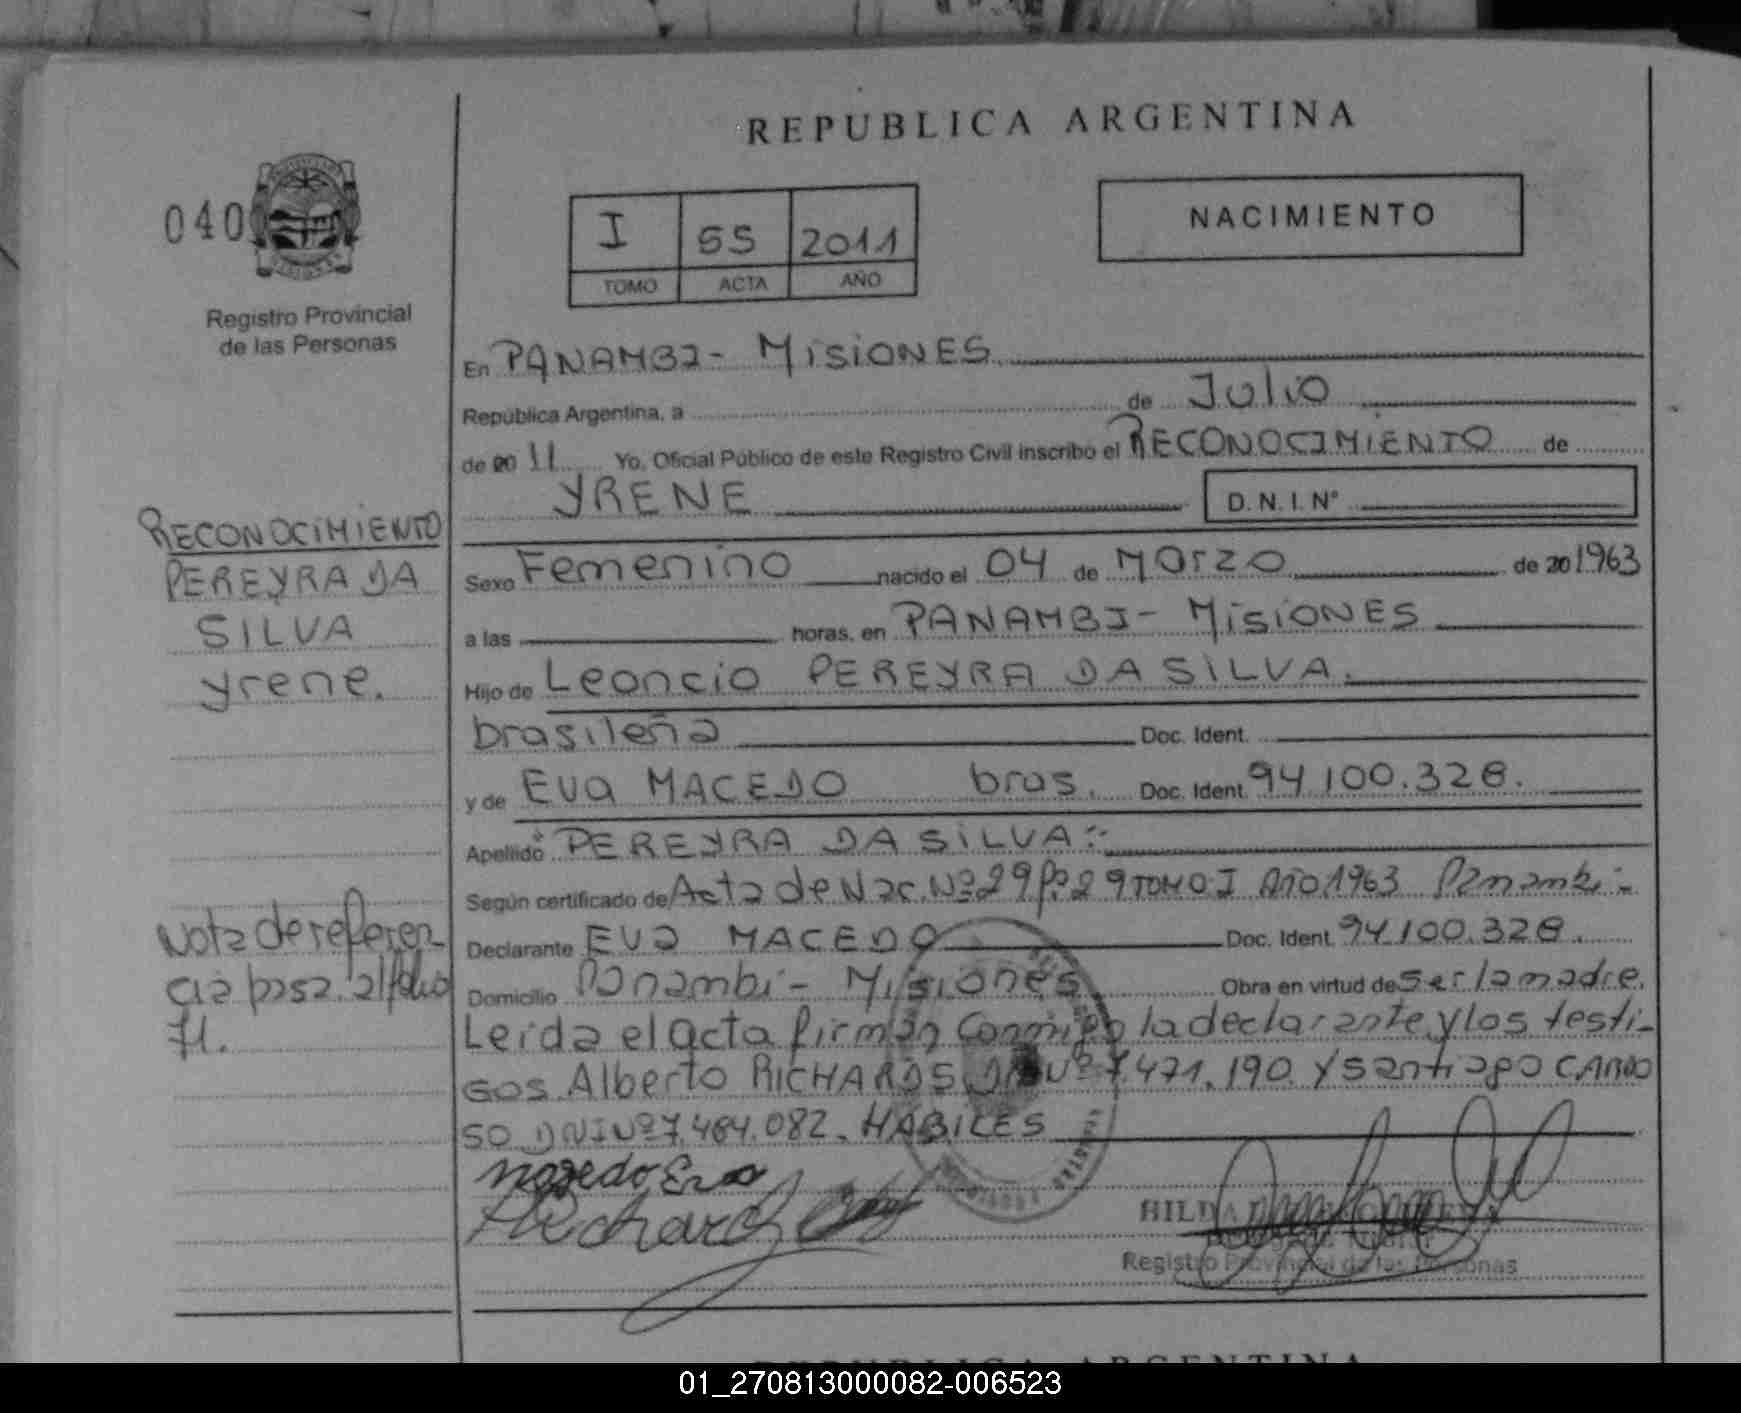 REPUBLICA ARGENTINA
040
I 55 2011
TOMO ACTA AÑO
NACIMIENTO
Registro Provincial
de las Personas
En PANAMBI - MISIONES
República Argentina, a de Julio
de 20 11 Yo, Oficial Público de este Registro Civil inscribo el RECONOCIMIENTO de
YRENE D.N.I. N°
RECONOCIMIENTO
PEREYRA DA
SILVA
yrene.
Sexo Femenino nacido el 04 de Marzo de 20 1963
a las horas, en PANAMBI - MISIONES
Hijo de Leoncio PEREYRA DA SILVA.
brasileña Doc. Ident.
y de EVA MACEDO bras. Doc. Ident. 94.100.328.
Apellido PEREYRA DA SILVA
Según certificado de Acta de Nac. Nº 29 Fº 29 TOMO I Año 1963 Panambi -
Nota de referen
cia pasa al folio
71.
Declarante EVA MACEDO Doc. Ident. 94.100.328.
Domicilio Panambi - Misiones Obra en virtud de ser la madre.
Leida el acta firman conmigo la declarante y los testi-
gos Alberto RICHARDS Nº 7.471.190 y Santiago CARDO
SO DNI Nº 7.484.082. HABILES
Eva
Richard
HILDA
Registro Provincial de las Personas
REPUBLICA ARGENTINA
01_270813000082-006523